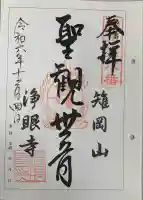 奉拝
雉岡山
聖観世音
浄眼寺
令和六年十二月四日